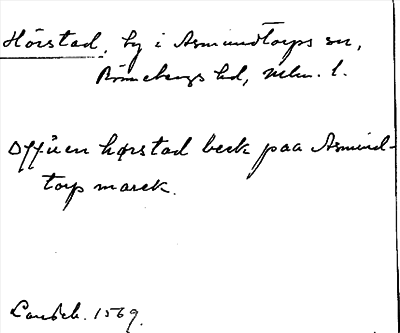 Hörstad, by i Asmundtorps sn,
Rönnebergs hd, Mlm. l.
Offuen hørstad beck paa Asmind-
torp marck.
Landeb. 1569.